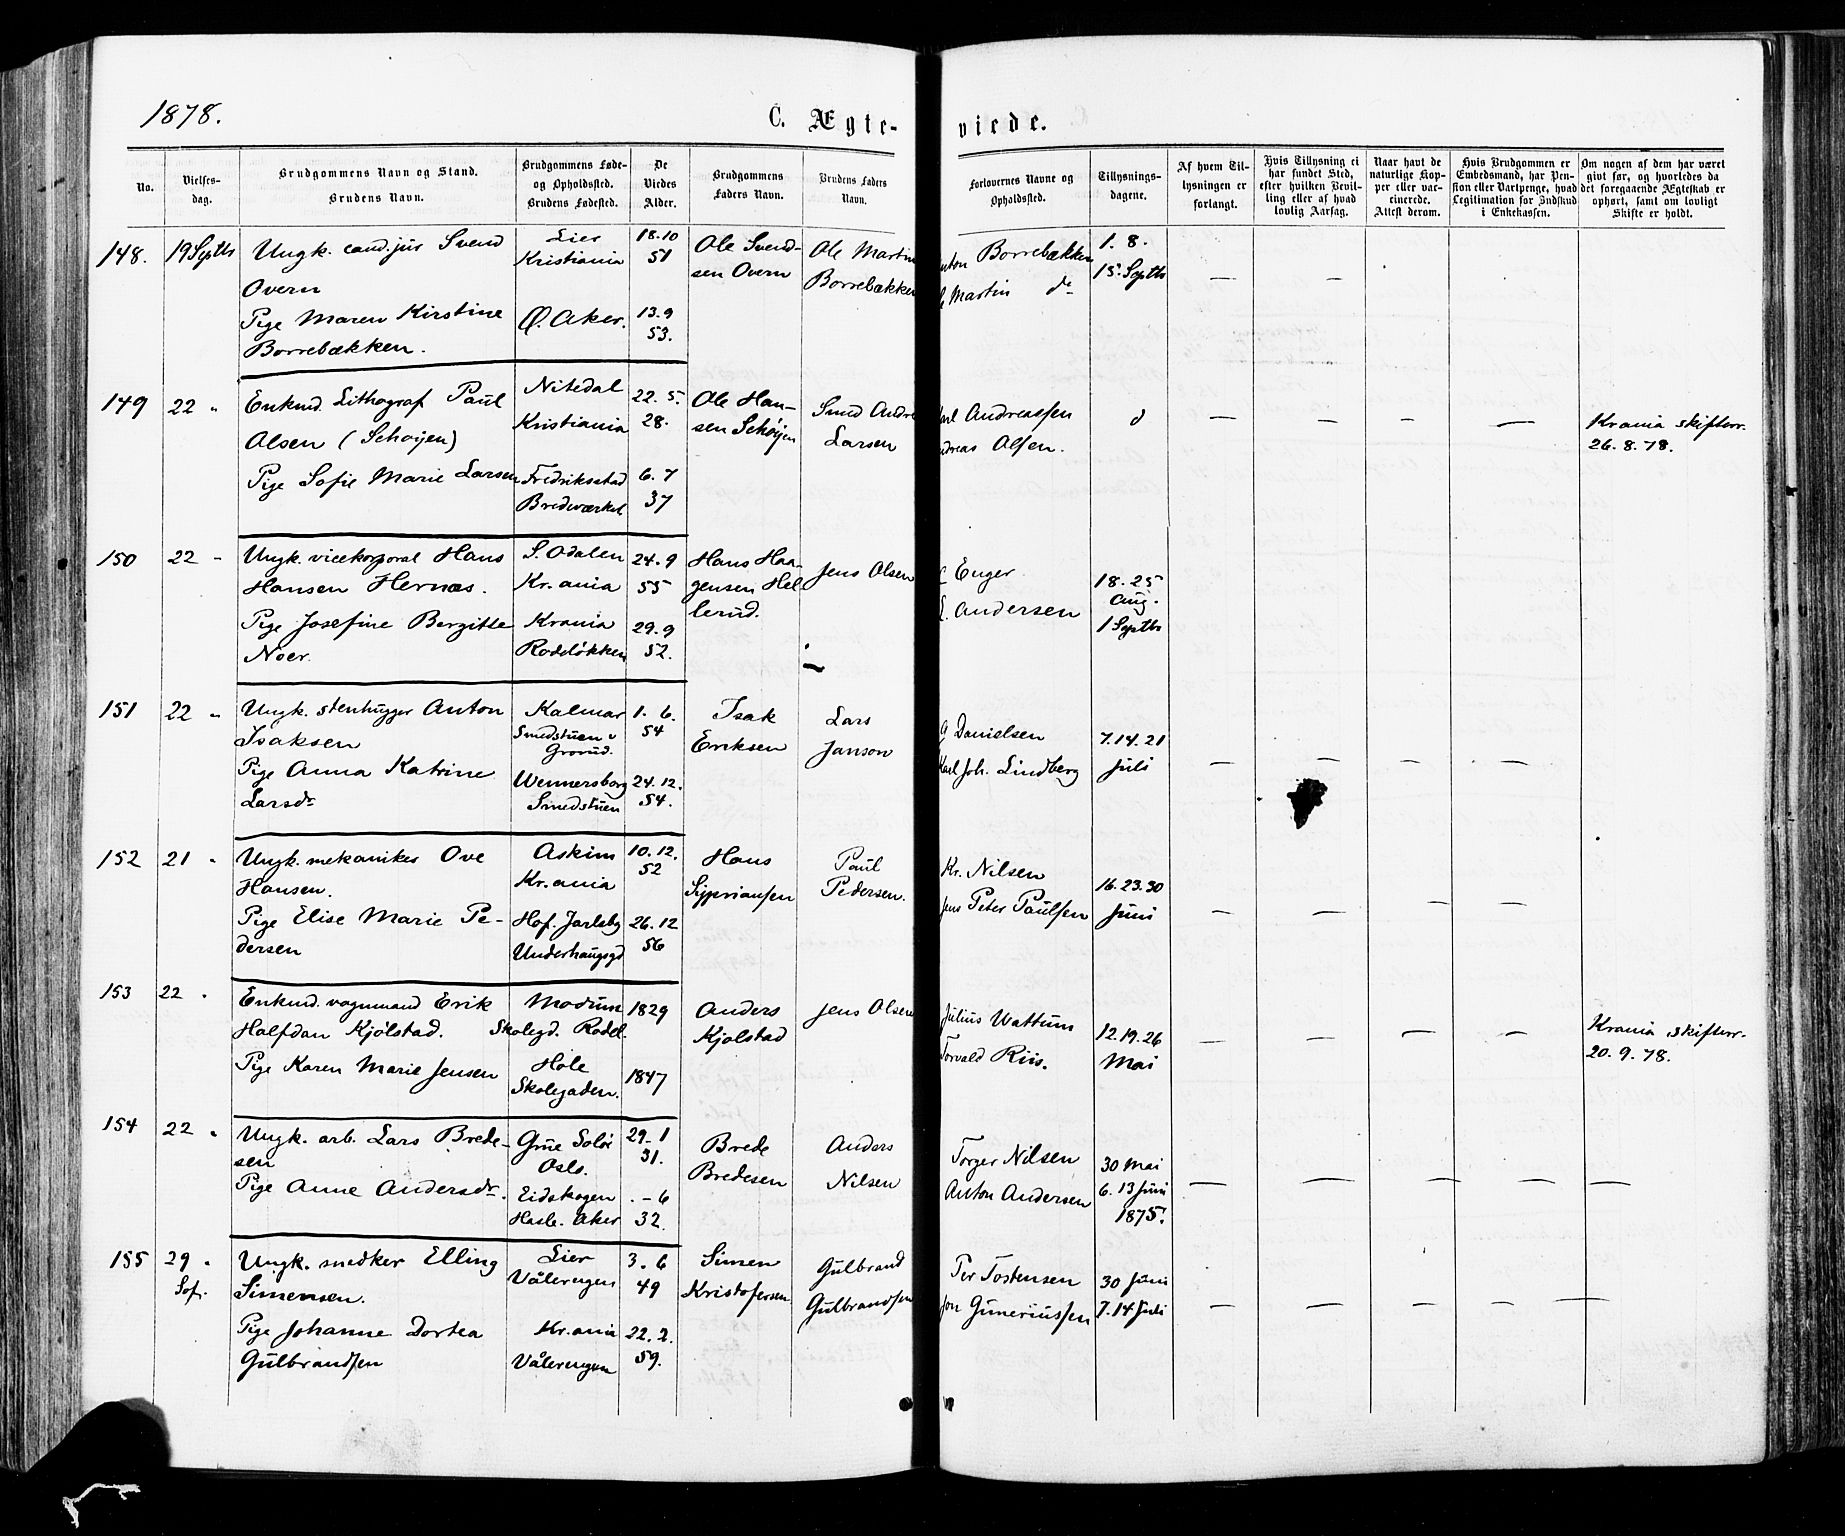 1878.
C. Ægte-
viede.
No.
Vielses-
dag.
Brudgommens Navn og Stand.
Brudens Navn.
Brudgommens Føde-
og Opholdssted.
Brudens Fødested.
De
Viedes
Alder.
Brudgommens
Faders Navn.
Brudens Faders
Navn.
Forlovernes Navne og
Opholdssted.
Tillysnings-
dagene.
Af hvem Til-
lysningen er
forlangt.
Hvis Tillysning ei
har fundet Sted,
efter hvilken Bevil-
ling eller af hvad
lovlig Aarsag.
Naar havt de
naturlige Kop-
per eller vac-
cinerede.
Attest derom.
Hvis Brudgommen er
Embedsmand, har Pen-
sion eller Vartpenge, hvad
Legitimation for Indskud
i Enkekassen.
Om nogen af dem har været
givt før, og hvorledes da
det foregaaende Ægteskab er
ophørt, samt om lovligt
Skifte er holdt.
148.
19 Septbr
Ungk. cand. jur Svend
Overn
Pige Maren Kirstine
Borrebækken.
Lier
Kristiania
Ø. Aker.
18.10
51
13.9
53.
Ole Svend-
sen Overn
Ole Martin
Borrebækken
Anton Borrebækken
Martin do
1. 8.
15. Septbr
149
22 "
Enkmd. Lithograf Paul
Olsen (Schøyen)
Pige Sofie Marie Larsen
Nitedal
Kristiania
Fredriksstad
Bredeværket
22. 5.
28.
6. 7
37
Ole Han-
sen Schøyen
Smed Andre
Larsen
Karl Andreassen
Andreas Olsen.
Krania skifterr.
26.8.78.
150
22 -
Ungk. vicekorporal Hans
Hansen Hernæs.
Pige Josefine Bergitte
Noer.
S. Odalen
Kr.ania
Krania
Rodeløkken
24.9
55
29.9
52.
Hans Haa-
gensen Hel
lerud.
Jens Olsen
Enger
Andersen
18. 25
aug.
1 Septbr
151
22 "
Ungk. stenhugger Anton
Isaksen
Pige Anna Katrine
Larsdr
Kalmar
Smedstuen v
Grorud.
Wennersborg
Smedstuen
1. 6.
54
24.12.
54.
Isak
Eriksen
Lars
Janson
G Danielsen
Karl Joh. Lindberg
7.14.21
Juli
152
21 "
Ungk. mekanikes Ove
Hansen.
Pige Elise Marie Pe-
dersen
Askim
Kr.ania
Hof. Jarlsbg
Underhaugsgd
10.12.
52
26.12
56
Hans
Sypriansen
Paul
Pedersen.
Kr. Nilsen
Jens Peter Paulsen
16.23.30
Juni
153
22 "
Enkmd. vognmand Erik
Halfdan Kjølstad.
Pige Karen Marie Jensen
Modum
Skolegd. Rodel.
Hole
Skolegaden.
1829
1847
Anders
Kjølstad
Jens Olsen
Julius Wattum
Torvald Riis.
12.19.26
Mai
Krania skifterr.
20.9.78.
154
22 "
Ungk. arb. Lars Brede-
sen
Pige Anne Andersdr.
Grue Solør
Oslo.
Eidskogen
Hasle. Aker
29-1
31.
. - 6
32.
Brede
Bredesen
Anders
Nilsen
Torger Nilsen
Anton Andersen
30 Mai
6. 13 Juni
1875.
155
29 "
Sof.
Ungk. snedker Elling
Simensen.
Pige Johanne Dortea
Gulbrandsen
Lier
Vålerengen
Kr.ania
Vålerengen
3. 6
49
22.2.
59.
Simen
Kristofersen
Gulbrand
Gulbrandsen
Per Tostensen
Jon Gunerius­sen
30 Juni
7.14 Juli